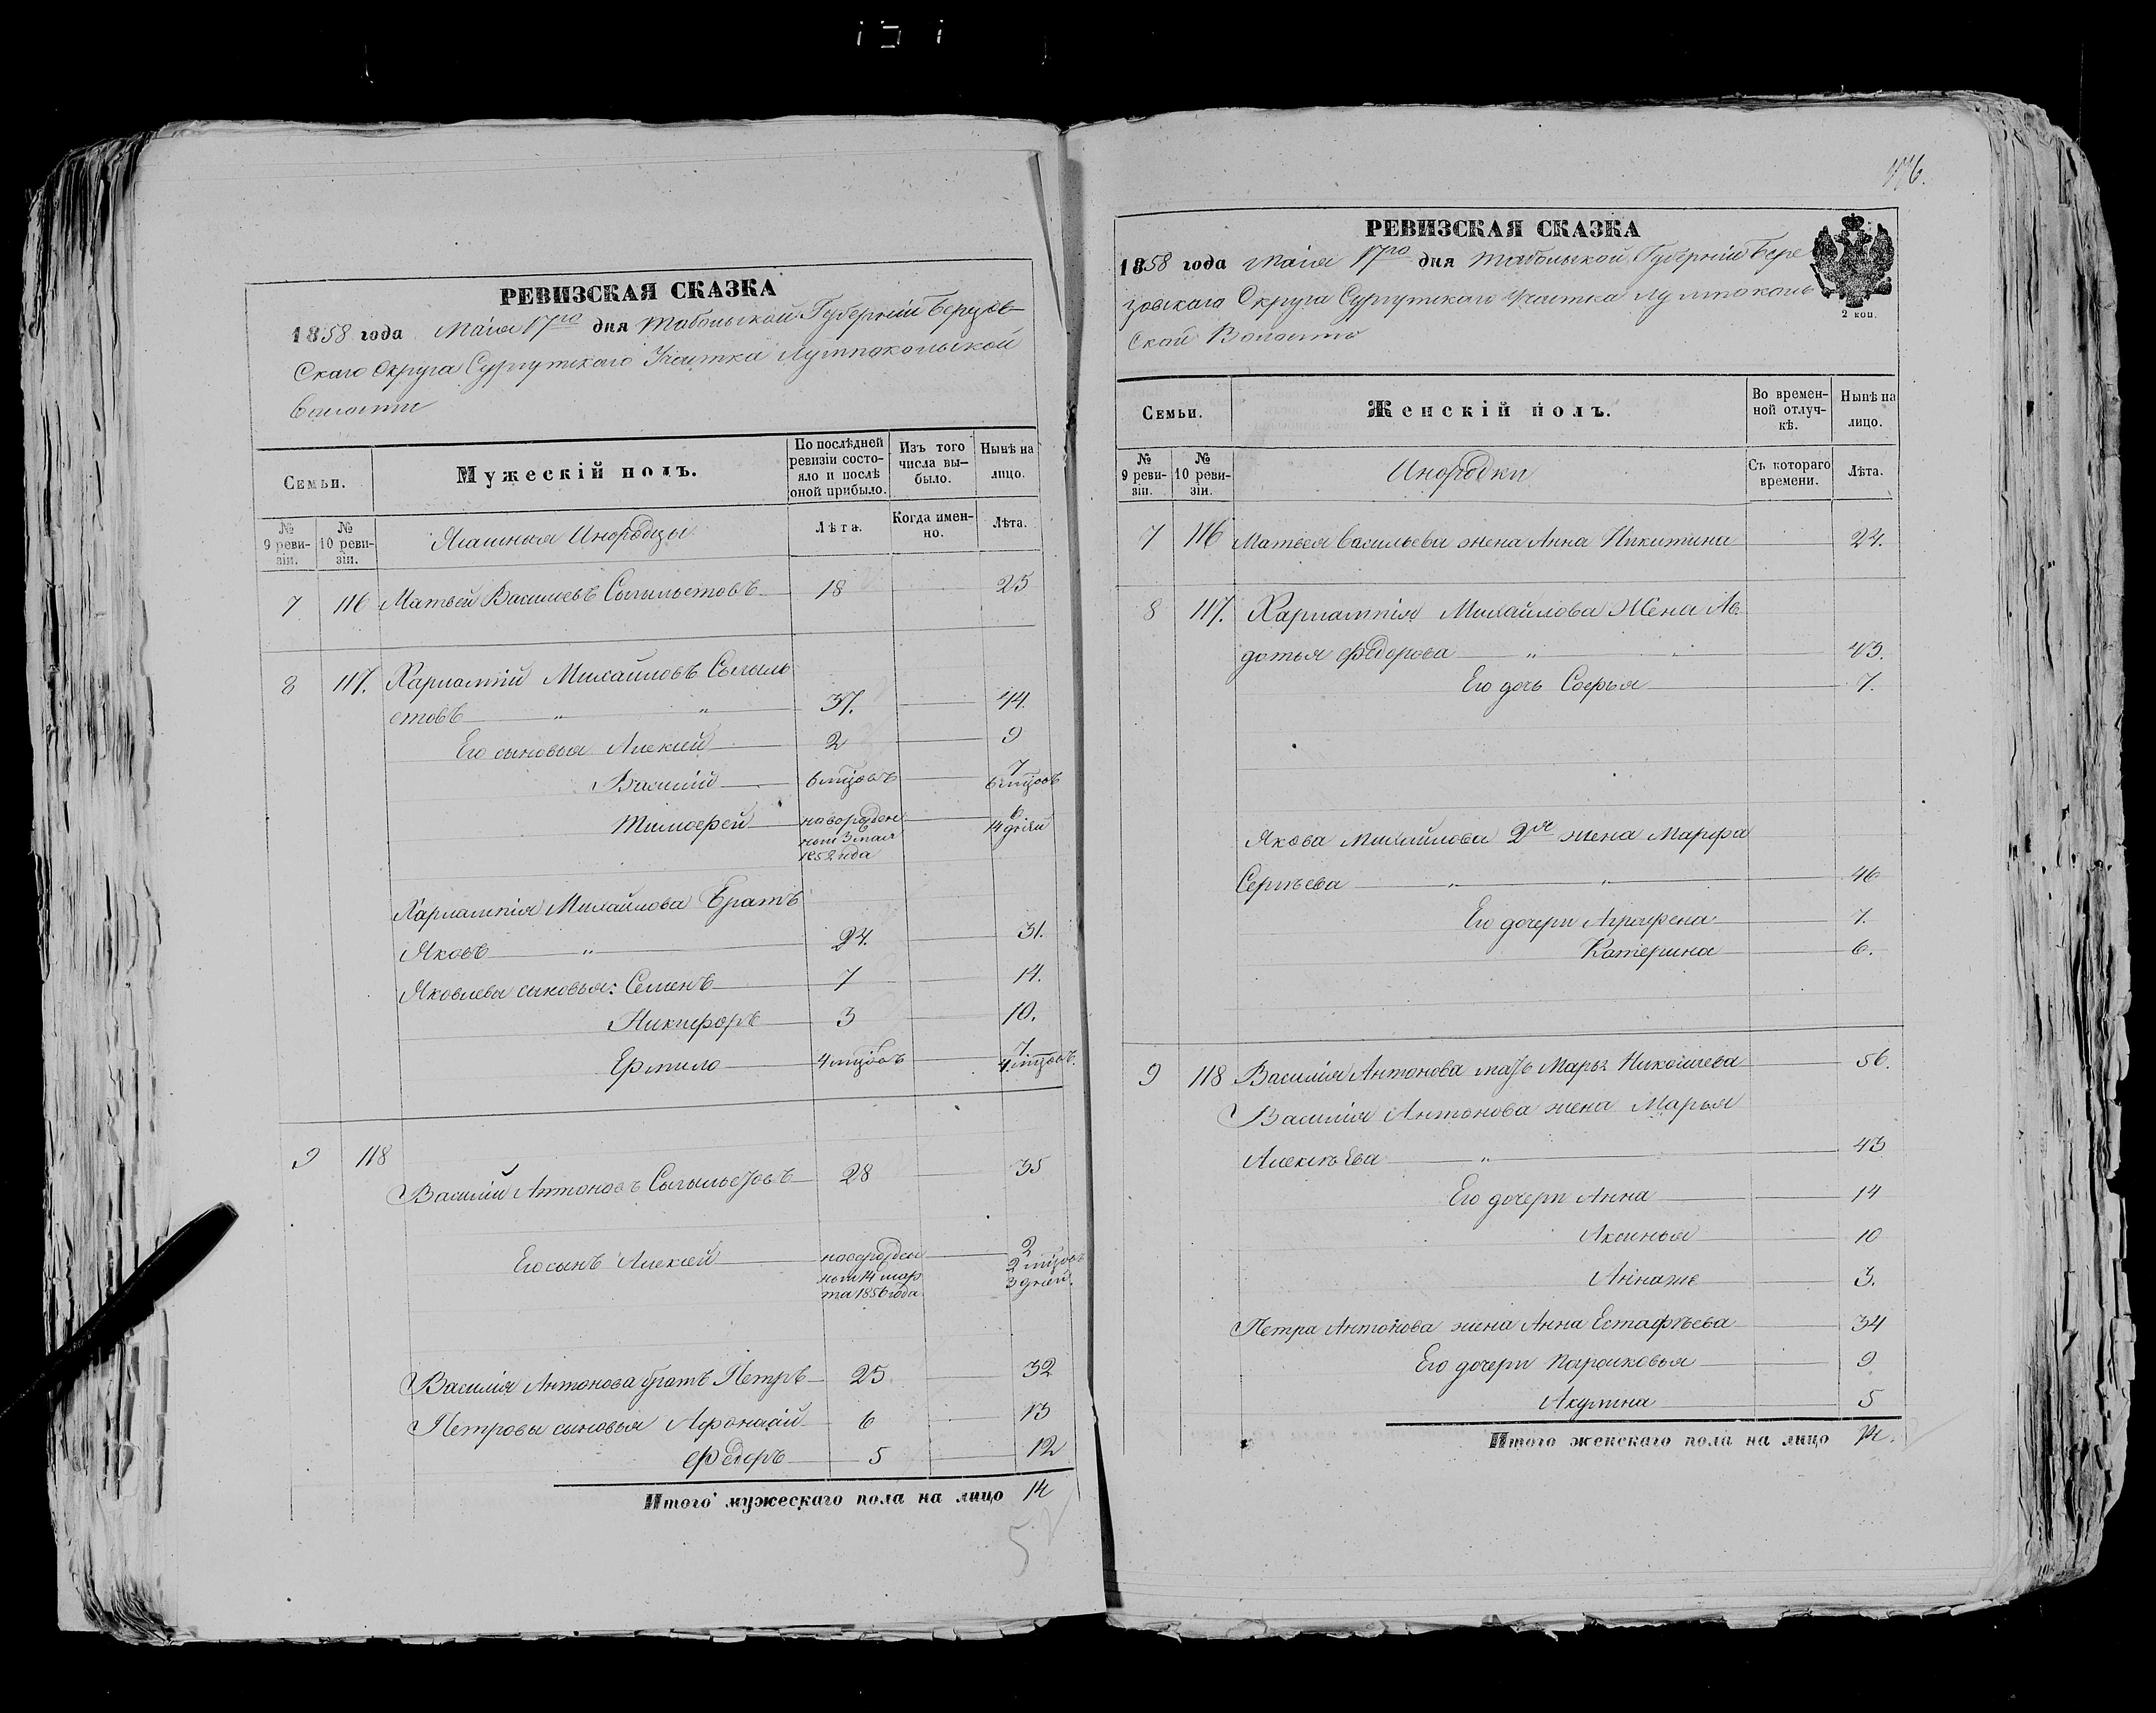 РЕВИЗСКАЯ СКАЗКА
1858 года Маія 17го дня Тобольской Губерніи Березов-
Скаго Округа Сургутскаго Участка Лумпокольской
Волости
Семьи.
Мужескій полъ.
По послѣдней ревизіи состо-яло и послѣ оной прибыло.
Изъ того числа вы-было.
Нынѣ на лицо.
№ 9 реви-зіи.
№ 10 реви-зіи.
Ясашныя Инородцы
Лѣта.
Когда имен-но.
Лѣта.
7 116 Матвей Васильевъ 18 25
8 117. Харлампій Михайловъ
37. 44.
Его сыновья Алексей 2 9
Василій 6 мцовъ 7 6 мцовъ
Тимофей новорожден ной 3 мая 1852 года 6 14 дней
Харлампія Михайлова Братъ
Яковъ " 24. 31.
Яковлева сыновья: Семенъ 7 14.
Никифоръ 3 10.
Ермило 4 мцовъ 7 4 мцовъ.
9 118
Василій Антоновъ 28 35
Его сынъ Алексей новорожден ной 14 мар та 1856 года 2 2 мцовъ 3 дней.
Василія Антонова братъ Петръ 25 32
Петровы сыновья Афонасій 6 13
Федоръ 5 12
Итого мужескаго пола на лицо 14
5
РЕВИЗСКАЯ СКАЗКА
1858 года Маія 17го дня Тобольской Губерніи Бере
зовскаго Округа Сургутскаго Участка Лумпоколь
Ской Волости
2 коп.
Семьи.
Женскій полъ.
Во времен-ной отлуч-кѣ.
Нынѣ на лицо.
№ 9 реви-зіи.
№ 10 реви-зіи.
Инородки
Съ котораго времени.
Лѣта.
7 116 Матвея Васильева жена Анна Никитина 24.
8 117. Харлампія Михайлова Жена Ав
дотья Федорова " 43.
Его дочь Софья 7.
Якова Михайлова 2я жена Марфа
Сергѣева " " 46
Его дочери Аграфена 7.
Катерина 6.
9 118 Василія Антонова мать Марья Николаева 56.
Василія Антонова жена Марья
Алексѣева " 43
Его дочери Анна 14
Аксинья 10
Анна же 3.
Петра Антонова жена Анна Естафѣева 34
Его дочери Парасковья 9
Акулина 5
Итого женскаго пола на лицо 14.